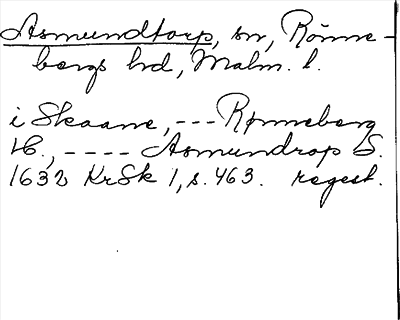 Asmundtorp, sn, Rönne-
bergs hd, Malm. l.
i Skaane, --- Rønneberg
H., ---- Asmundrop S.
1632 KrSk 1, s. 463. regest.